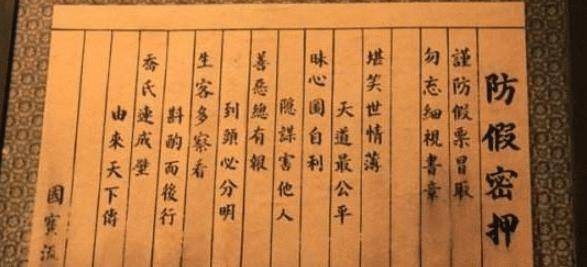 防假密押
謹防假票冒取
勿忘細視書章
堪笑世情薄
天道最公平
昧心圖自利
陰謀害他人
善惡總有報
到頭必分明
生客多察看
斟酌而後行
喬氏連成璧
由來天下傳
國寶流